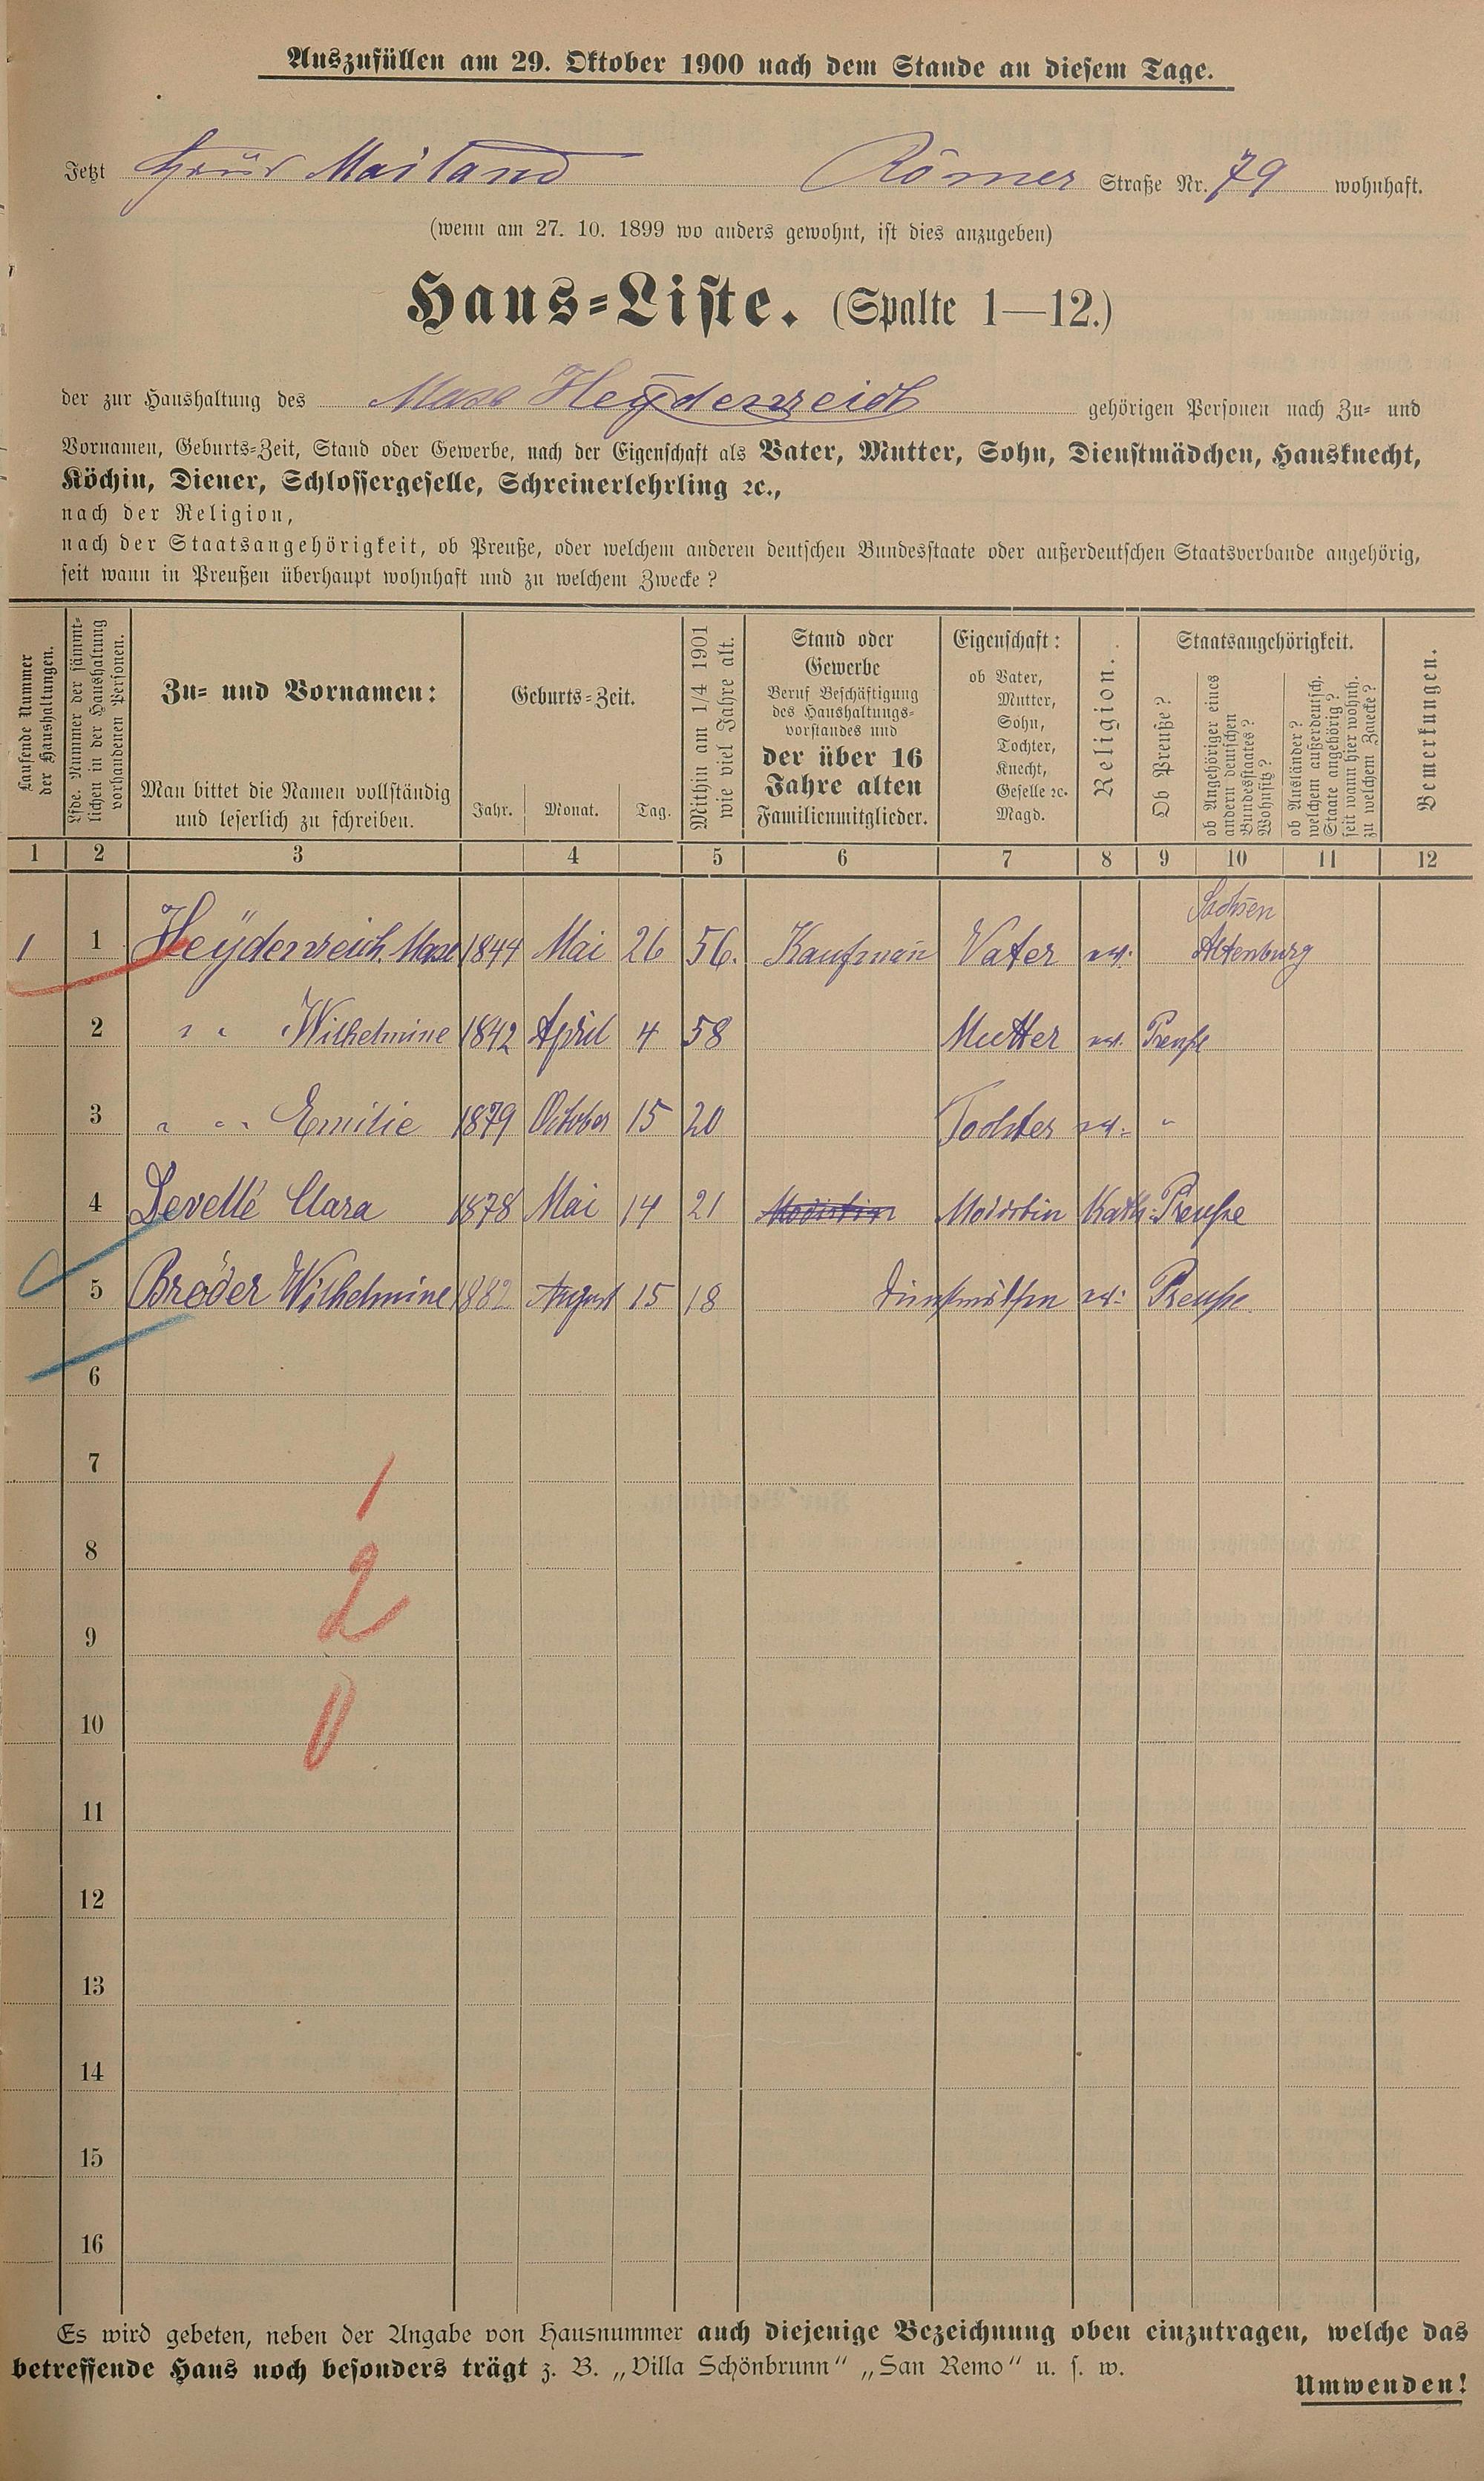 Auszufüllen am 29. Oktober 1900 nach dem Stande an diesem Tage.
Jetzt Haus Mailand Römer Straße Nr. 79 wohnhaft.
(wenn am 27. 10. 1899 wo anders gewohnt, ist dies anzugeben)
Haus=Liste. (Spalte 1—12.)
der zur Haushaltung des Max Heydenreich gehörigen Personen nach Zu= und
Vornamen, Geburts=Zeit, Stand oder Gewerbe, nach der Eigenschaft als Vater, Mutter, Sohn, Dienstmädchen, Hausknecht,
Köchin, Diener, Schlossergeselle, Schreinerlehrling ꝛc.,
nach der Religion,
nach der Staatsangehörigkeit, ob Preuße, oder welchem anderen deutschen Bundesstaate oder außerdeutschen Staatsverbande angehörig,
seit wann in Preußen überhaupt wohnhaft und zu welchem Zwecke?
Laufende Nummer
der Haushaltungen.
Lfde. Nummer der sämmt=
lichen in der Haushaltung
vorhandenen Personen.
Zu= und Vornamen:
Man bittet die Namen vollständig
und leserlich zu schreiben.
Geburts=Zeit.
Jahr. Monat. Tag.
Mithin am 1/4 1901
wie viel Jahre alt.
Stand oder
Gewerbe
Beruf Beschäftigung
des Haushaltungs=
vorstandes und
der über 16
Jahre alten
Familienmitglieder.
Eigenschaft:
ob Vater,
Mutter,
Sohn,
Tochter,
Knecht,
Geselle ꝛc.
Magd.
Religion.
Staatsangehörigkeit.
Ob Preuße?
ob Angehöriger eines
andern deutschen
Bundesstaates?
Wohnsitz?
ob Ausländer?
welchem außerdeutsch.
Staate angehörig?
seit wann hier wohnh.
zu welchem Zwecke?
Bemerkungen.
1 2 3 4 5 6 7 8 9 10 11 12
Sachsen
1 1 Heydenreich, Max 1844 Mai 26 56. Kaufmann Vater ev. Altenburg
2 " " Wilhelmine 1842 April 4 58 Mutter ev. Preuße
3 " " Emilie 1879 October 15 20 Tochter ev. "
4 Devellé Clara 1878 Mai 14 21 Modistin Modistin Kath. Preuße
5 Bröder Wilhelmine 1882 August 15 18 ev. Preuße
6
7
1
8
2
9
10
0
11
12
13
14
15
16
Es wird gebeten, neben der Angabe von Hausnummer auch diejenige Bezeichnung oben einzutragen, welche das
betreffende Haus noch besonders trägt z. B. „Villa Schönbrunn“ „San Remo“ u. s. w.
Umwenden!